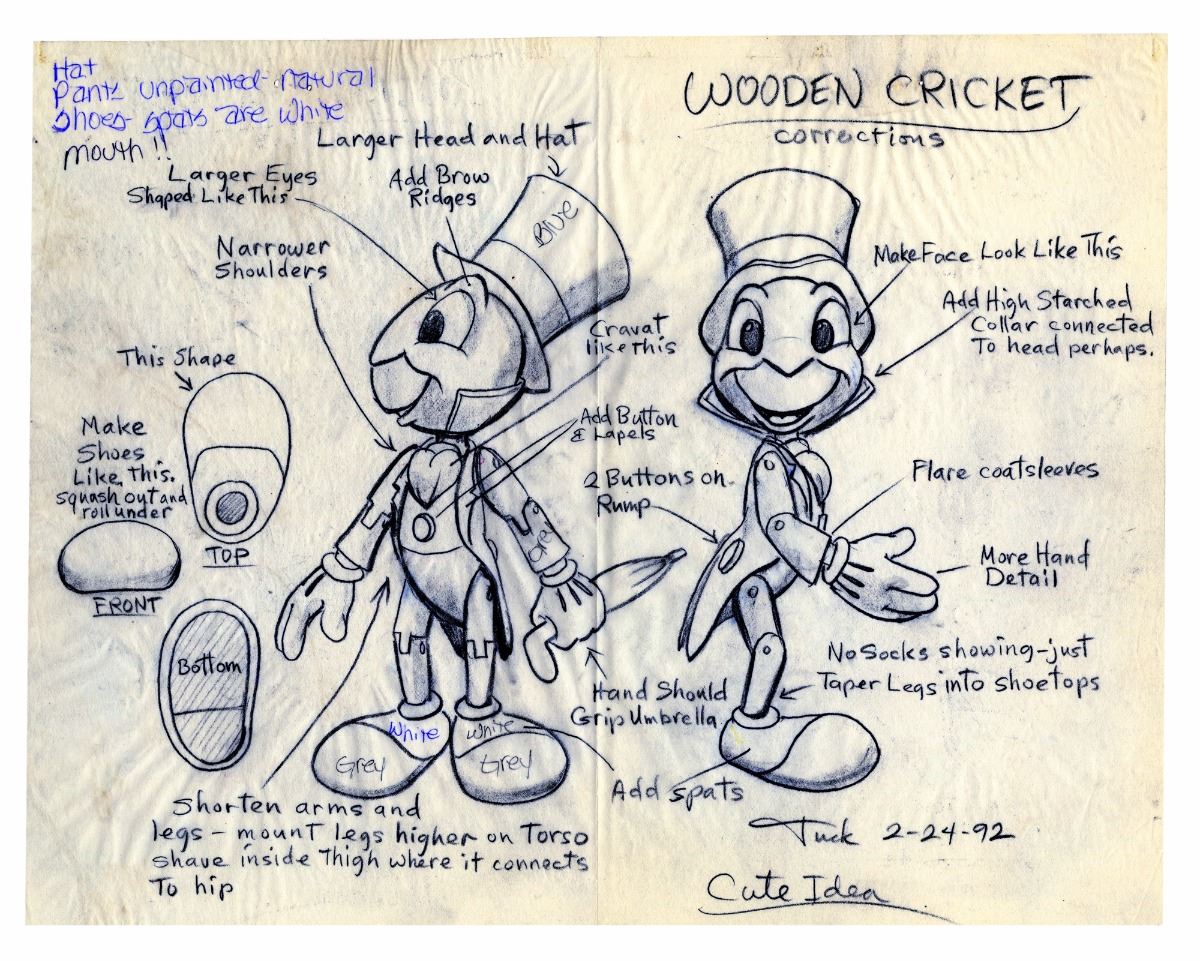 Hat
Pants unpainted-natural
Shoes- spats are white
mouth !!
WOODEN CRICKET
corrections
Larger Head and Hat
Larger Eyes
Shaped Like This
Add Brow
Ridges
Blue
Narrower
Shoulders
Make Face Look Like This
Add High Starched
Collar connected
To head perhaps.
Cravat
like this
This Shape
Make
Shoes
Like This.
squash out and
roll under
TOP
FRONT
Bottom
Add Button
& Lapels
2 Buttons on
Rump
Flare coatsleeves
Grey
More Hand
Detail
No Socks showing-just
Taper Legs into shoetops
Hand Should
Grip Umbrella
White
White
Grey
Grey
Add spats
Shorten arms and
legs - mount legs higher on Torso
shave inside Thigh where it connects
To hip
Tuck 2-24-92
Cute Idea